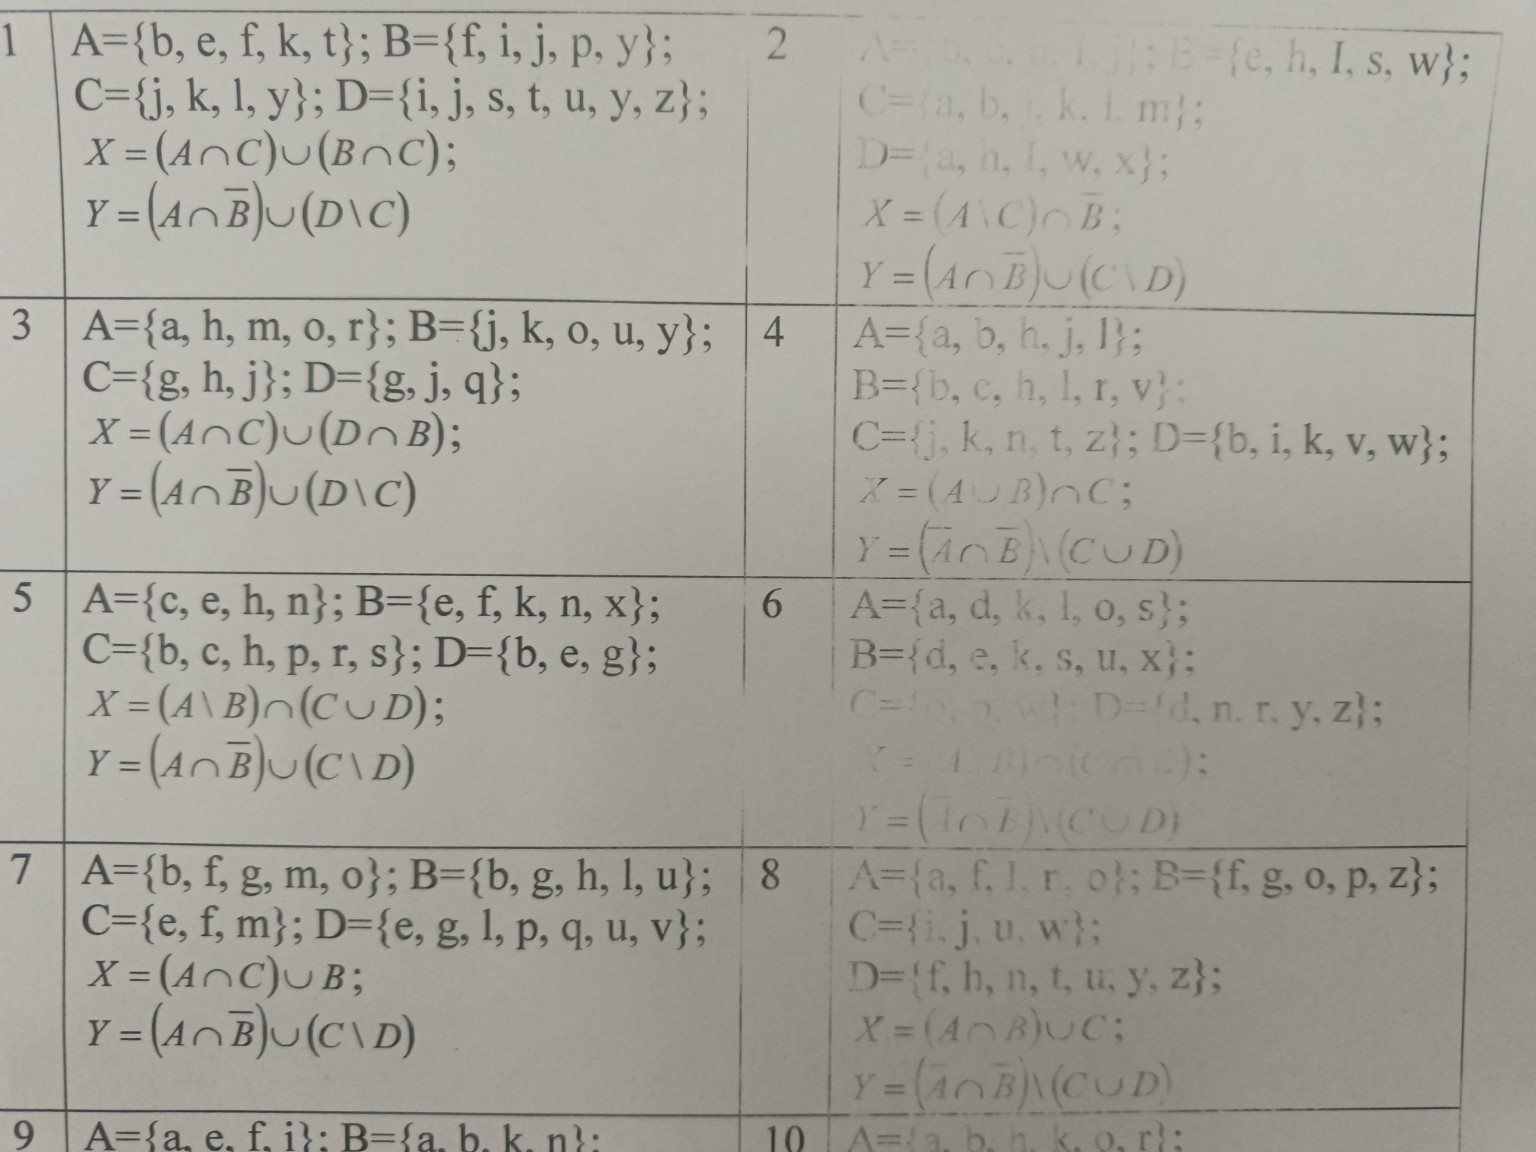 1
A={b, e, f, k, t}; B={f, i, j, p, y};
C={j, k, l, y}; D={i, j, s, t, u, y, z};
X = (A∩C)∪(B∩C);
Y = (A∩B̅)∪(D\C)
2
B={e, h, I, s, w};
C={a, b, k, l, m};
D={a, h, l, w, x};
X = (A\C)∩B̅;
Y = (A∩B̅)∪(C\D)
3
A={a, h, m, o, r}; B={j, k, o, u, y};
C={g, h, j}; D={g, j, q};
X = (A∩C)∪(D∩B);
Y = (A∩B̅)∪(D\C)
4
A={a, b, h, j, l};
B={b, c, h, l, r, v};
C={j, k, n, t, z}; D={b, i, k, v, w};
X = (A∪B)∩C;
Y = (A̅∩B̅)\(C∪D)
5
A={c, e, h, n}; B={e, f, k, n, x};
C={b, c, h, p, r, s}; D={b, e, g};
X = (A\B)∩(C∪D);
Y = (A∩B̅)∪(C\D)
6
A={a, d, k, l, o, s};
B={d, e, k, s, u, x};
D={d, n, r, y, z};
Y = (A̅∩B̅)\(C∪D)
7
A={b, f, g, m, o}; B={b, g, h, l, u};
C={e, f, m}; D={e, g, l, p, q, u, v};
X = (A∩C)∪B;
Y = (A∩B̅)∪(C\D)
8
A={a, f, l, r, o}; B={f, g, o, p, z};
C={i, j, u, w};
D={f, h, n, t, u, y, z};
X = (A∩B)∪C;
Y = (A̅∩B̅)\(C∪D)
9
A={a, e, f, i}; B={a, b, k, n};
10
A={a, b, h, k, o, r};